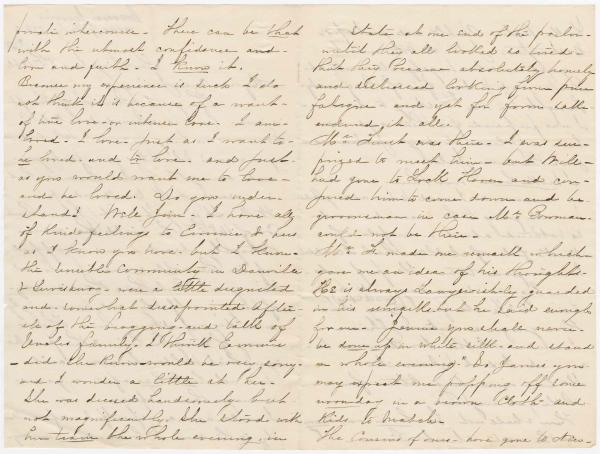 private intercourse - There can be that
with the utmost confidence and -
love and faith - I know it.
Because my experience is such I do
not think it is because of a want -
of true love - or intense love. I am -
loved - I love - just as I want to -
be loved and to love - and just -
as you would want me to love -
and be loved. Do you under-
stand? Well Jim - I have all
of kind feelings to Emmie &
as I know you have - but I know -
the entire community in Danville
& Lewisburg - were a little disgusted
and somewhat disappointed after
all of the bragging and talk of
family. I think Emmie
- did she know - would be very sorry -
and I wonder a little at her -
She was dressed handsomely but
not magnificently. She stood with
her train the whole evening, in
state at one end of the parlor -
until they all looked so tired -
that they became absolutely homely
and distressed looking from pure
fatigue - and yet for form sake
endured it all.
Mr. was there - I was sur-
prized to meet him - but Will -
had gone to Lock Haven and con-
jured him to come down and be
groomsman in case Mr. Bowman -
could not be there -
Mr. made me remarks which
gave me an idea of his thoughts.
He is always Lawyerishly guarded
in his but he said enough
for me - Jennie you shall never
be done up in white silk - and stand
a whole evening." So James you
may expect me popping off some
noonday in a brown cloth - and
Kids to match -
The Cousins of ours - have gone to